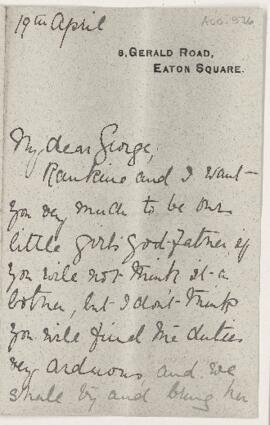 19th April
Acc. 526
8, GERALD ROAD,
EATON SQUARE.
My dear George,
Rankine and I want
you very much to be our
little girls god-father, if
you will not think it a
bother, but I don't think
you will find the duties
very arduous and we
shall try and bring her